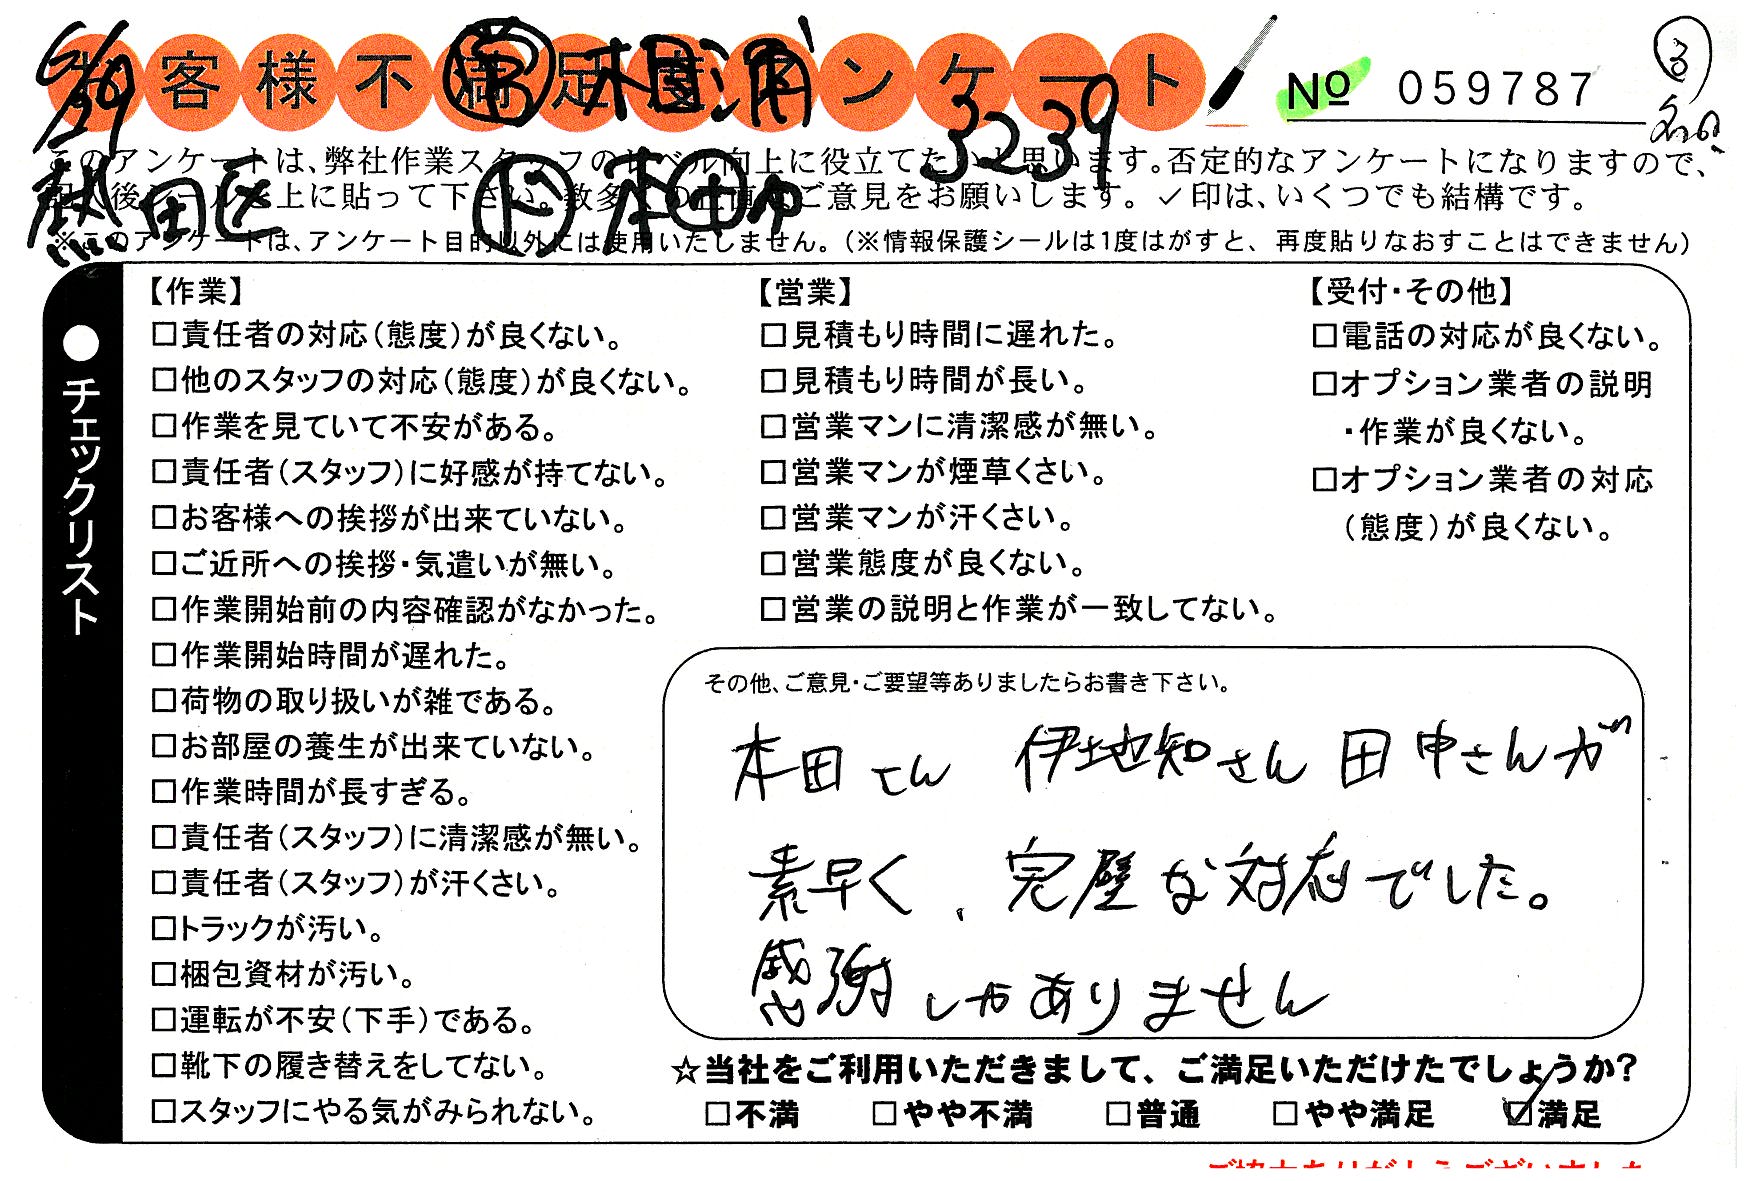 お客様不満足度アンケート
No 059787
3
6/29
3239
熱田区
ド 本田
このアンケートは、弊社作業スタッフのレベル向上に役立てたいと思います。否定的なアンケートになりますので、
記入後シールを上に貼って下さい。数多くの正直なご意見をお願いします。✓印は、いくつでも結構です。
※このアンケートは、アンケート目的以外には使用いたしません。(※情報保護シールは1度はがすと、再度貼りなおすことはできません)
●チェックリスト
【作業】
□責任者の対応(態度)が良くない。
□他のスタッフの対応(態度)が良くない。
□作業を見ていて不安がある。
□責任者(スタッフ)に好感が持てない。
□お客様への挨拶が出来ていない。
□ご近所への挨拶・気遣いが無い。
□作業開始前の内容確認がなかった。
□作業開始時間が遅れた。
□荷物の取り扱いが雑である。
□お部屋の養生が出来ていない。
□作業時間が長すぎる。
□責任者(スタッフ)に清潔感が無い。
□責任者(スタッフ)が汗くさい。
□トラックが汚い。
□梱包資材が汚い。
□運転が不安(下手)である。
□靴下の履き替えをしてない。
□スタッフにやる気がみられない。
【営業】
□見積もり時間に遅れた。
□見積もり時間が長い。
□営業マンに清潔感が無い。
□営業マンが煙草くさい。
□営業マンが汗くさい。
□営業態度が良くない。
□営業の説明と作業が一致してない。
【受付・その他】
□電話の対応が良くない。
□オプション業者の説明
・作業が良くない。
□オプション業者の対応
(態度)が良くない。
その他、ご意見・ご要望等ありましたらお書き下さい。
本田さん 伊地知さん 田中さんが
素早く、完璧な対応でした。
感謝しかありません
☆当社をご利用いただきまして、ご満足いただけたでしょうか?
□不満 □やや不満 □普通 □やや満足 ☑満足
ご協力ありがとうございました